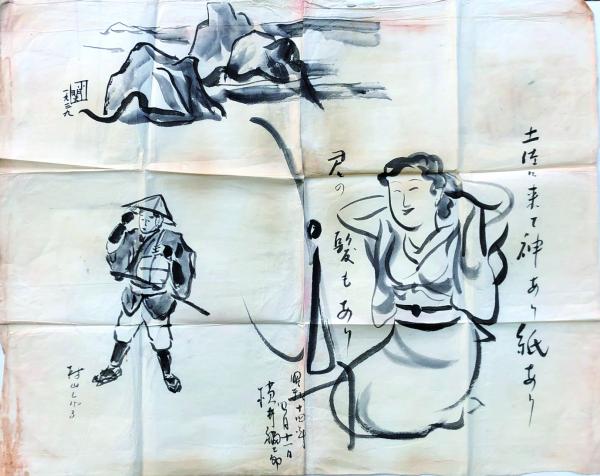 土佐に来て神あり紙あり
君の髪もあり
一九三九
昭和十四年
四月十一日
横井福二郎
村山しげる